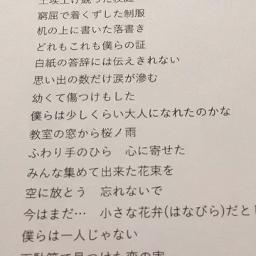 窮屈で着くずした制服
机の上に書いた落書き
どれもこれも僕らの証
白紙の答辞には伝えきれない
思い出の数だけ涙が滲む
幼くて傷つけもした
僕らは少しくらい大人になれたのかな
教室の窓から桜ノ雨
ふわり手のひら　心に寄せた
みんな集めて出来た花束を
空に放とう　忘れないで
今はまだ…　小さな花弁(はなびら)だと
僕らは一人じゃない